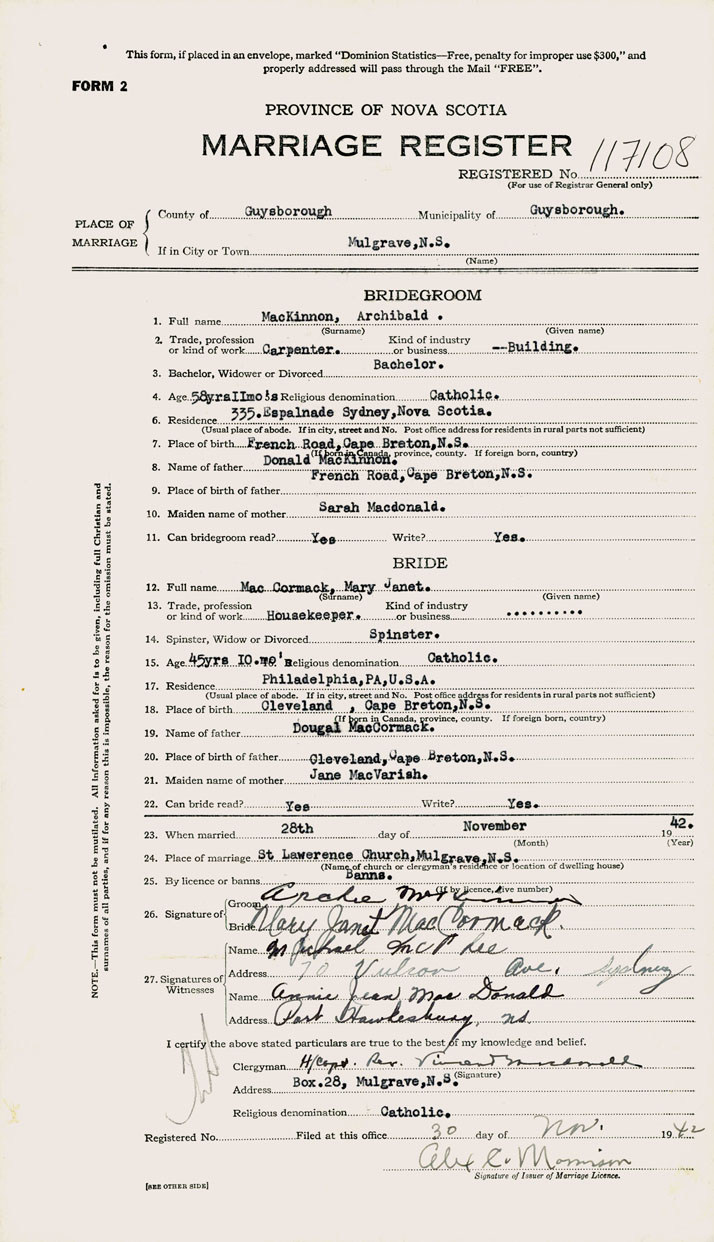 This form, if placed in an envelope, marked “Dominion Statistics—Free, penalty for improper use $300,” and
properly addressed will pass through the Mail “FREE”.
FORM 2
PROVINCE OF NOVA SCOTIA
MARRIAGE REGISTER
117108
REGISTERED No.
(For use of Registrar General only)
PLACE OF MARRIAGE
County of Guysborough Municipality of Guysborough.
If in City or Town Mulgrave,N.S.
(Name)
BRIDEGROOM
1. Full name MacKinnon, Archibald .
(Surname) (Given name)
2. Trade, profession or kind of work Carpenter. Kind of industry or business --Building.
3. Bachelor, Widower or Divorced Bachelor.
4. Age 58yrsIImo's Religious denomination Catholic.
6. Residence 335.Espalnade Sydney,Nova Scotia.
(Usual place of abode. If in city, street and No. Post office address for residents in rural parts not sufficient)
7. Place of birth French Road,Cape Breton,N.S.
(If born in Canada, province, county. If foreign born, country)
8. Name of father Donald MacKinnon.
9. Place of birth of father French Road,Cape Breton,N.S.
10. Maiden name of mother Sarah Macdonald.
11. Can bridegroom read? Yes Write? Yes.
BRIDE
12. Full name Mac Cormack, Mary Janet.
(Surname) (Given name)
13. Trade, profession or kind of work Housekeeper. Kind of industry or business ..........
14. Spinster, Widow or Divorced Spinster.
15. Age 45yrs IO.mo's Religious denomination Catholic.
17. Residence Philadelphia,PA,U.S.A.
(Usual place of abode. If in city, street and No. Post office address for residents in rural parts not sufficient)
18. Place of birth Cleveland , Cape Breton,N.S.
(If born in Canada, province, county. If foreign born, country)
19. Name of father Dougal MacCormack.
20. Place of birth of father Cleveland,Cape Breton,N.S.
21. Maiden name of mother Jane MacVarish.
22. Can bride read? Yes Write? Yes.
23. When married 28th day of November 19 42.
(Month) (Year)
24. Place of marriage St Lawerence Church,Mulgrave,N.S.
(Name of church or clergyman's residence or location of dwelling house)
25. By licence or banns Banns.
(If by licence, give number)
26. Signature of
Groom Archie McKinnon
Bride Mary Janet MacCormack.
27. Signatures of Witnesses
Name Michael McPhee
Address 70 Ave. Sydney
Name Annie Jean MacDonald
Address Port Hawkesbury, ns
I certify the above stated particulars are true to the best of my knowledge and belief.
Clergyman H/Capt. Rev. Vincent Macdonald
(Signature)
Address Box.28, Mulgrave,N.S.
Religious denomination Catholic.
Registered No. Filed at this office 30 day of Nov. 19 42
Alex C. Morrison
Signature of Issuer of Marriage Licence.
[SEE OTHER SIDE]
NOTE.—This form must not be mutilated. All information asked for is to be given, including full Christian and
surnames of all parties, and if for any reason this is impossible, the reason for the omission must be stated.